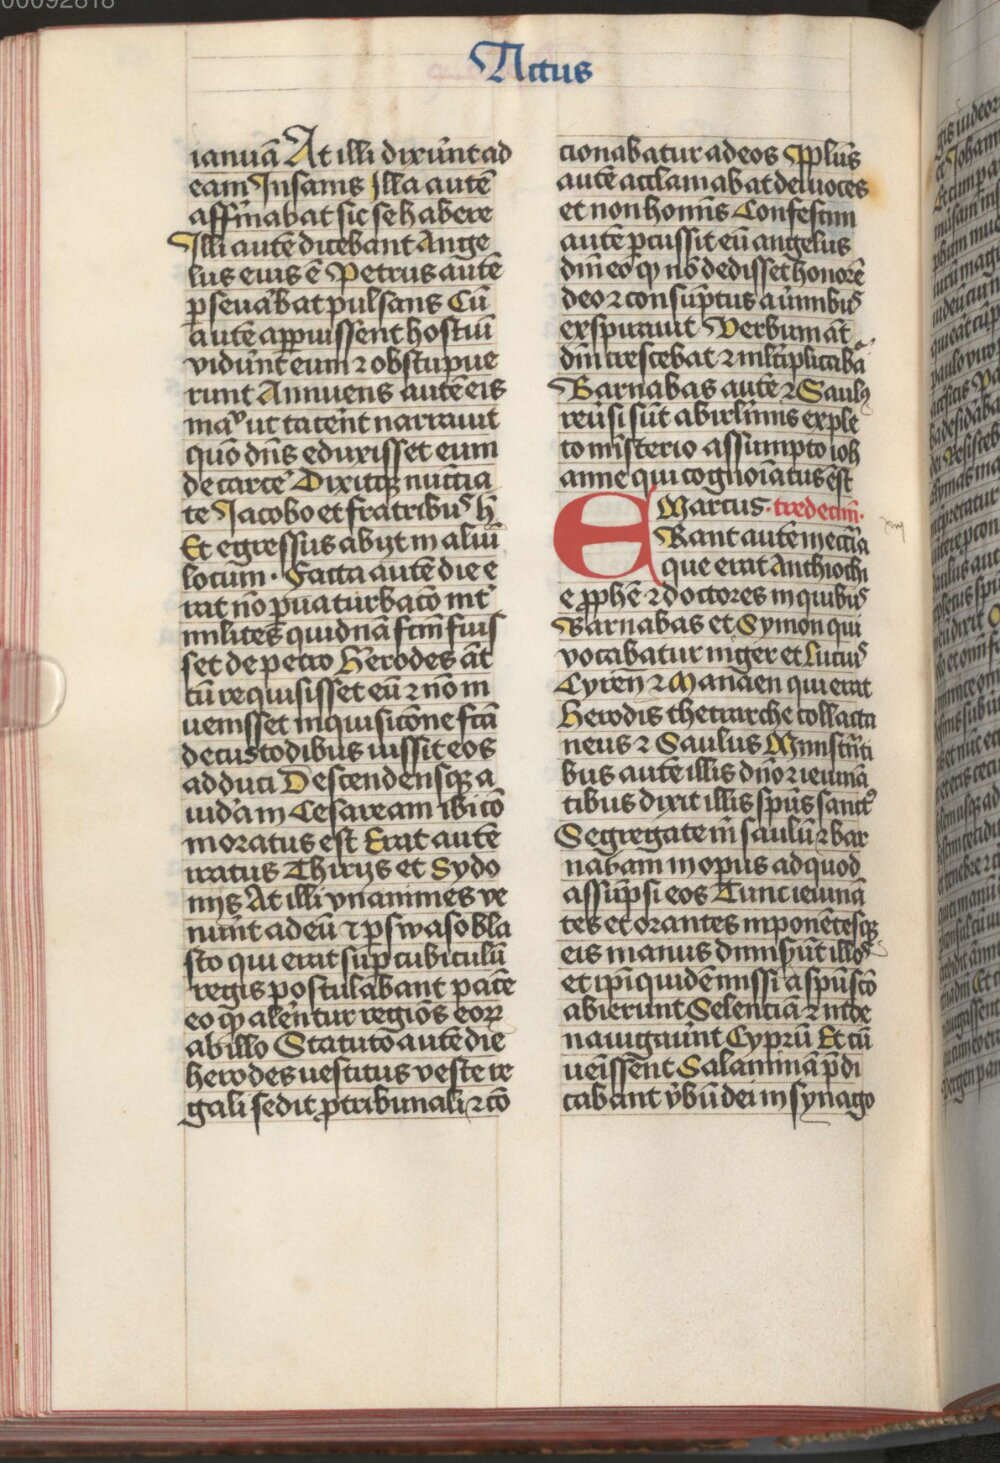 00092818
Actus
ianuā At illi dixer̄unt ad
eam Insanis Illa autē
affirmabat sic se habere
Illi autē dicebant Ange
lus eius ē Petrus autē
ꝑseuerabat pulsans Cū
autē aꝑuissent hostiū
viderunt eum ⁊ obstupue
runt Annuens autē eis
manu ut tacerēt narrauit
quō dn̄s eduxisset eum
de carcere Dixitqꝫ nuncia
te Iacobo et fratribus h̄
Et egressus abijt in aliū
locum · Facta autē die e
rat nō pua turbacō int̄
milites quidnā fcm̄ fuis
set de petro Herodes āt
cū requisisset eū ⁊ nō in
uenisset inquisicōne fcā
de custodibus iussit eos
adduci Descendensqꝫ a
iudam Cesaream ibi cō
moratus est Erat autē
iratus Thirijs et Sydo
nijs At illi vnanimes ve
nerunt ad eū ⁊ ꝑswaso bla
sto qui erat suꝑ cubiculū
regis postulabant pacē
eo ꝙ alerentur regiōs eoꝝ
ab illo Statuto autē die
herodes uestitus veste re
gali sedit ꝓ tribunali ⁊ cō
cionabatur ad eos Ppl̄us
autē acclamabat dei uoces
et non homīs Confestim
autē ꝑcussit eū angelus
dn̄i eo ꝙ nō dedisset honorē
deo ⁊ consūptus a vermibus
exspirauit Verbum āt
dn̄i crescebat ⁊ ml̄tiplicabat̄
Barnabas autē ⁊ Saulꝰ
reūsi sūt ab irl̄imis exple
to mīsterio assumpto ioh
anne qui cognoīatus est
Marcus · tredecim̄ ·
ERant autem in eccīa
que erat Anthiochi
e ꝓphē ⁊ doctores in quibus
Barnabas et Symon qui
vocabatur niger et Lucius
Cyreń ⁊ Manaen qui erat
Herodis thetrarche collacta
neus ⁊ Saulus Ministranti
bus autē illis dn̄o ⁊ ieiunā
tibus dixit illis spūs sanctꝰ
Segregate m̄ saulū ⁊ bar
nabam in opus ad quod
assūpsi eos Tunc ieiunā
tes et orantes inponētesqꝫ
eis manus dimiserūt illos
et ip̄i quidē missi a spū scō
abierunt Selenciā ⁊ inde
nauigauerunt Cyprū Et cū
uenīssent Salaminā p̄di
cabant v̄bū dei in synago